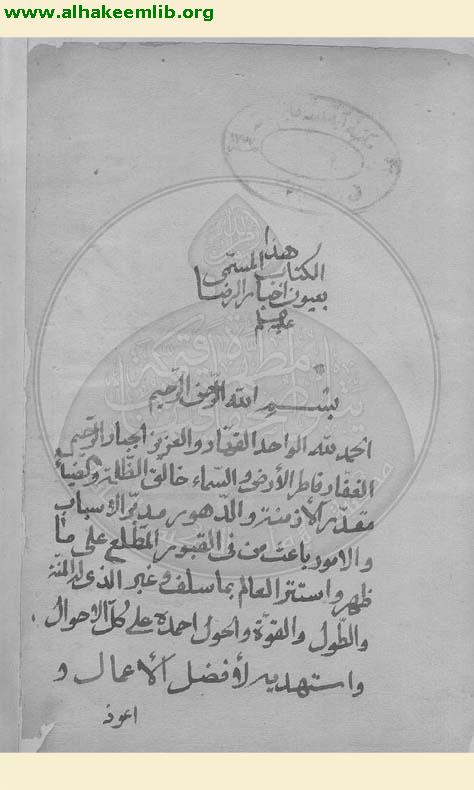 www.alhakeemlib.org
هذا
الكتاب المسمى
بعيون اخبار الرضا
عليه
بسم الله الرحمن الرحيم
الحمد لله الواحد القهار والعزيز الجبار الرحيم
الغفار فاطر الأرض والسماء خالق الظلمة والضياء
مقدر الأزمنة والدهور مدبر الاسباب
والامور باعث من في القبور المطلع على ما
ظهر واستتر العالم بما سلف وغبر الذي له المنة
والطول والقوة والحول احمده على كل الاحوال
واستهديه لأفضل الأعمال و
اعوذ